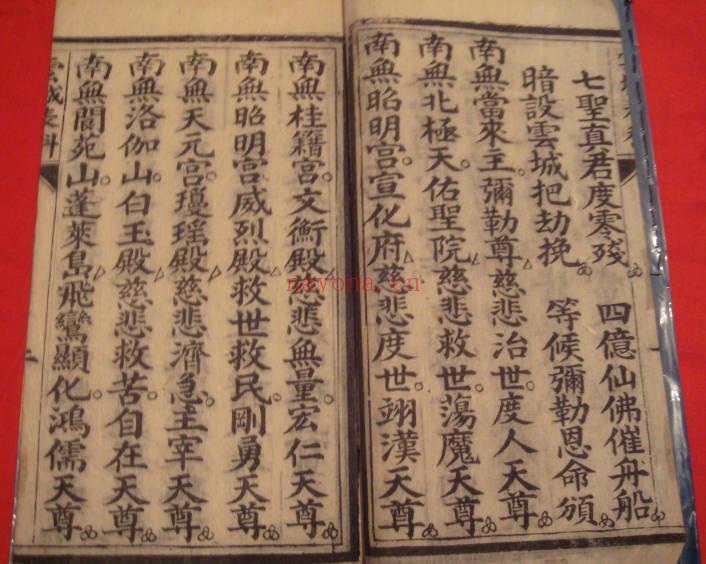 七聖真君度零殘 四億仙佛催舟船
暗設雲城把劫挽 等候彌勒恩命頒
南無當來主彌勒尊慈悲治世度人天尊
南無北極天佑聖院慈悲救世蕩魔天尊
南無昭明宮宣化府慈悲度世翊漢天尊
南無桂籍宮文衡殿慈悲無量宏仁天尊
南無昭明宮威烈殿救世救民剛勇天尊
南無天元宮瓊瑤殿慈悲濟急主宰天尊
南無洛伽山白玉殿慈悲救苦自在天尊
南無閬苑山蓬萊島飛鸞顯化鴻儒天尊
雲城 科
nayona.cn